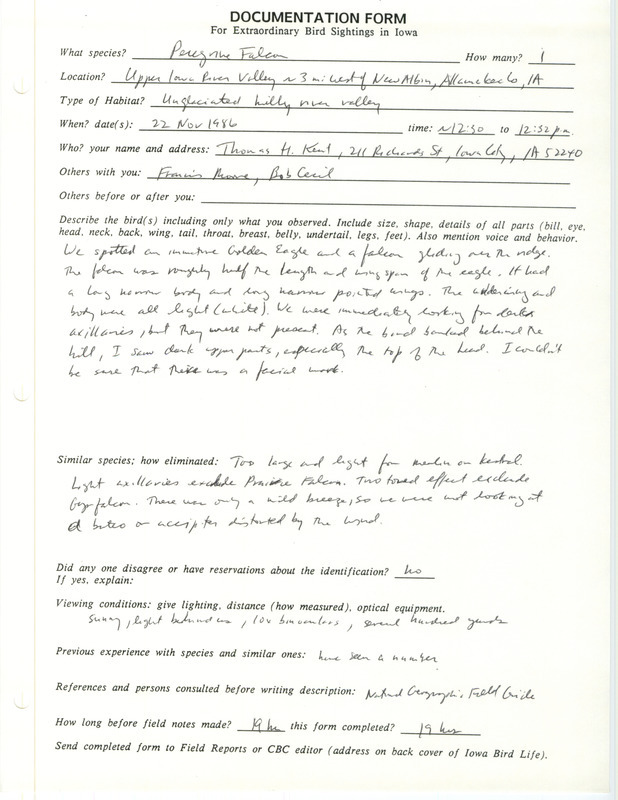 DOCUMENTATION FORM
For Extraordinary Bird Sightings in Iowa
What species? Peregrine Falcon How many? 1
Location? Upper Iowa River Valley ~ 3 mi west of New Albin, Allamakee Co, IA
Type of Habitat? Unglaciated hilly river valley
When? date(s): 22 Nov 1986 time: ~12:30 to 12:32 p.m.
Who? your name and address: Thomas H. Kent, 211 Richards St, Iowa City, IA 52240
Others with you: Francis Moore, Bob Cecil
Others before or after you:
Describe the bird(s) including only what you observed. Include size, shape, details of all parts (bill, eye,
head, neck, back, wing, tail, throat, breast, belly, undertail, legs, feet). Also mention voice and behavior.
We spotted an immature Golden Eagle and a falcon gliding over the ridge.
The falcon was roughly half the length and wing span of the eagle. It had
a long narrow body and long narrow pointed wings. The underwing and
body were all light (white). We were immediately looking for dark
axillaries, but they were not present. As the bird banked behind the
hill, I saw dark upper parts, especially the top of the head. I couldn't
be sure that there was a facial mark.
Similar species; how eliminated: Too large and light for merlin or kestrel.
Light axillaries exclude Prairie Falcon. Two toned effect exclude
Gyrfalcon. There was only a mild breeze, so we were not looking at
a buteo or accipiter distorted by the wind.
Did any one disagree or have reservations about the identification? no
If yes, explain:
Viewing conditions: give lighting, distance (how measured), optical equipment.
sunny, light behind us, 10x binoculars, several hundred yards
Previous experience with species and similar ones: have seen a number
References and persons consulted before writing description: National Geographic Field Guide
How long before field notes made? 19 hr this form completed? 19 hrs
Send completed form to Field Reports or CBC editor (address on back cover of Iowa Bird Life).